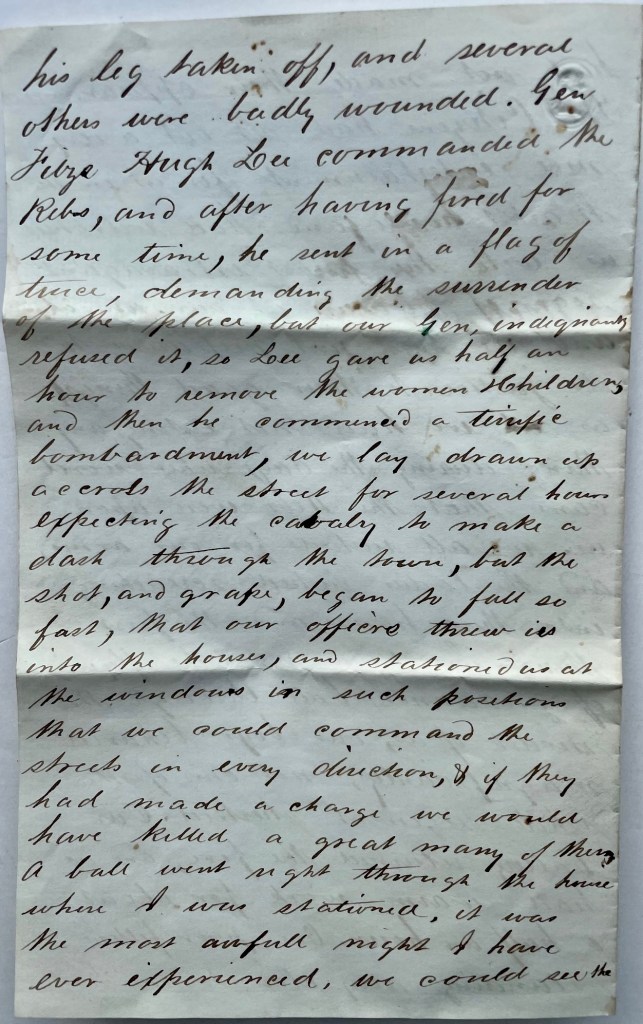 his leg taken off, and several
others were badly wounded. Gen
Fitze Hugh Lee commanded the
Rebs, and after having fired for
some time, he sent in a flag of
truce, demanding the surrender
of the place, but our Gen, indignantly
refused it, so Lee gave us half an
hour to remove the women & Children,
and then he commenced a terrific
bombardment, we lay drawn up
accross the street for several hours
expecting the cavalry to make a
dash through the town, but the
shot, and grape, began to fall so
fast, that our officers threw us
into the houses, and stationed us at
the windows in such positions
that we could command the
streets in every direction, & if they
had made a charge we would
have killed a great many of them
A ball went right through the house
where I was stationed, it was
the most awfull night I have
ever experienced, we could see the